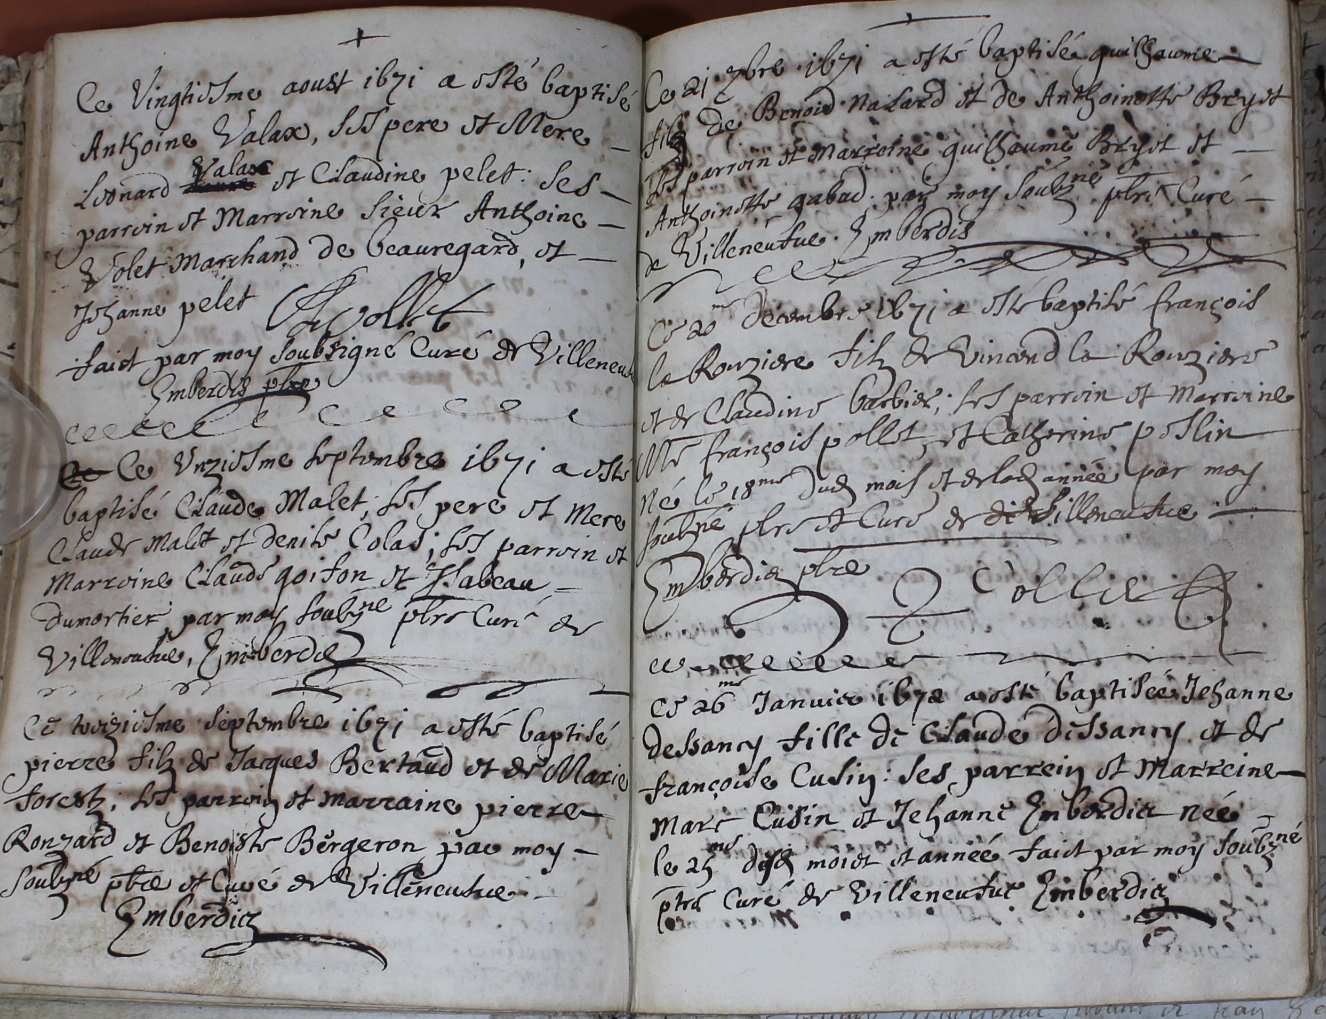 Ce Vingtiesme aoust 1671 a esté baptisé
Anthoine Valax, ses pere et Mere
Leonard Valax et Claudine pelet: ses
parroin et Marroine sieur Anthoine
Volet Marchand de beauregard, et
Jehanne pelet AVollet
faict par moy soubsigné Curé de Villeneufve
Emberdis pbre
Ce Unziesme septembre 1671 a esté
baptisé Claude Malet; ses pere et Mere
Claude Malet et denise Colas; ses parroin et
Marroine Claude goifon et Isabeau
dumortier par moy soubzne pbre Curé de
Villeneufve, Emberdis
Ce treiziesme septembre 1671 a esté baptisé
pierre filz de Jacques Bertaud et de Marie
forestz; ses parroin et marraine pierre
Ronzard et Benoiste Bergeron par moy
soubzné pbre et Curé de Villeneufve
Emberdis
Ce 21 7bre 1671 a esté baptisé guilhaume
filz de Benoid Nalard et de Anthoinette Bryet
ses parroin et Marroine guilhaume Bryet et
Anthoinette gabad. par moy soubzné pbre Curé
de Villeneufve Emberdis
Ce 20me decembre 1671 a esté baptisé françois
la Ronziere filz de Vincend la Ronziere
et de Claudine barbier; ses parroin et Marroine
Me françois pollet et Catherine poslin
Né le 18me dud mois et de lad année par moy
soubzné pbre et Curé de Villeneufve
Emberdis pbre Collet
Ce 26me Janvier 1672 a esté baptisée Jehanne
dessancy fille de Claude dessancy et de
françoise Cusin: ses parrein et Marreine
Marc Cusin et Jehanne Emberdis née
le 25me dud moiet et année faict par moy soubzné
pbre Curé de Villeneufve Emberdis